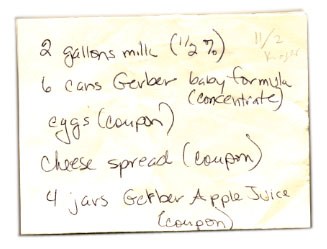 2 gallons milk (1/2 %)
11/2
6 cans Gerber baby formula
(concentrate)
eggs (coupon)
cheese spread (coupon)
4 jars Gerber Apple Juice
(coupon)